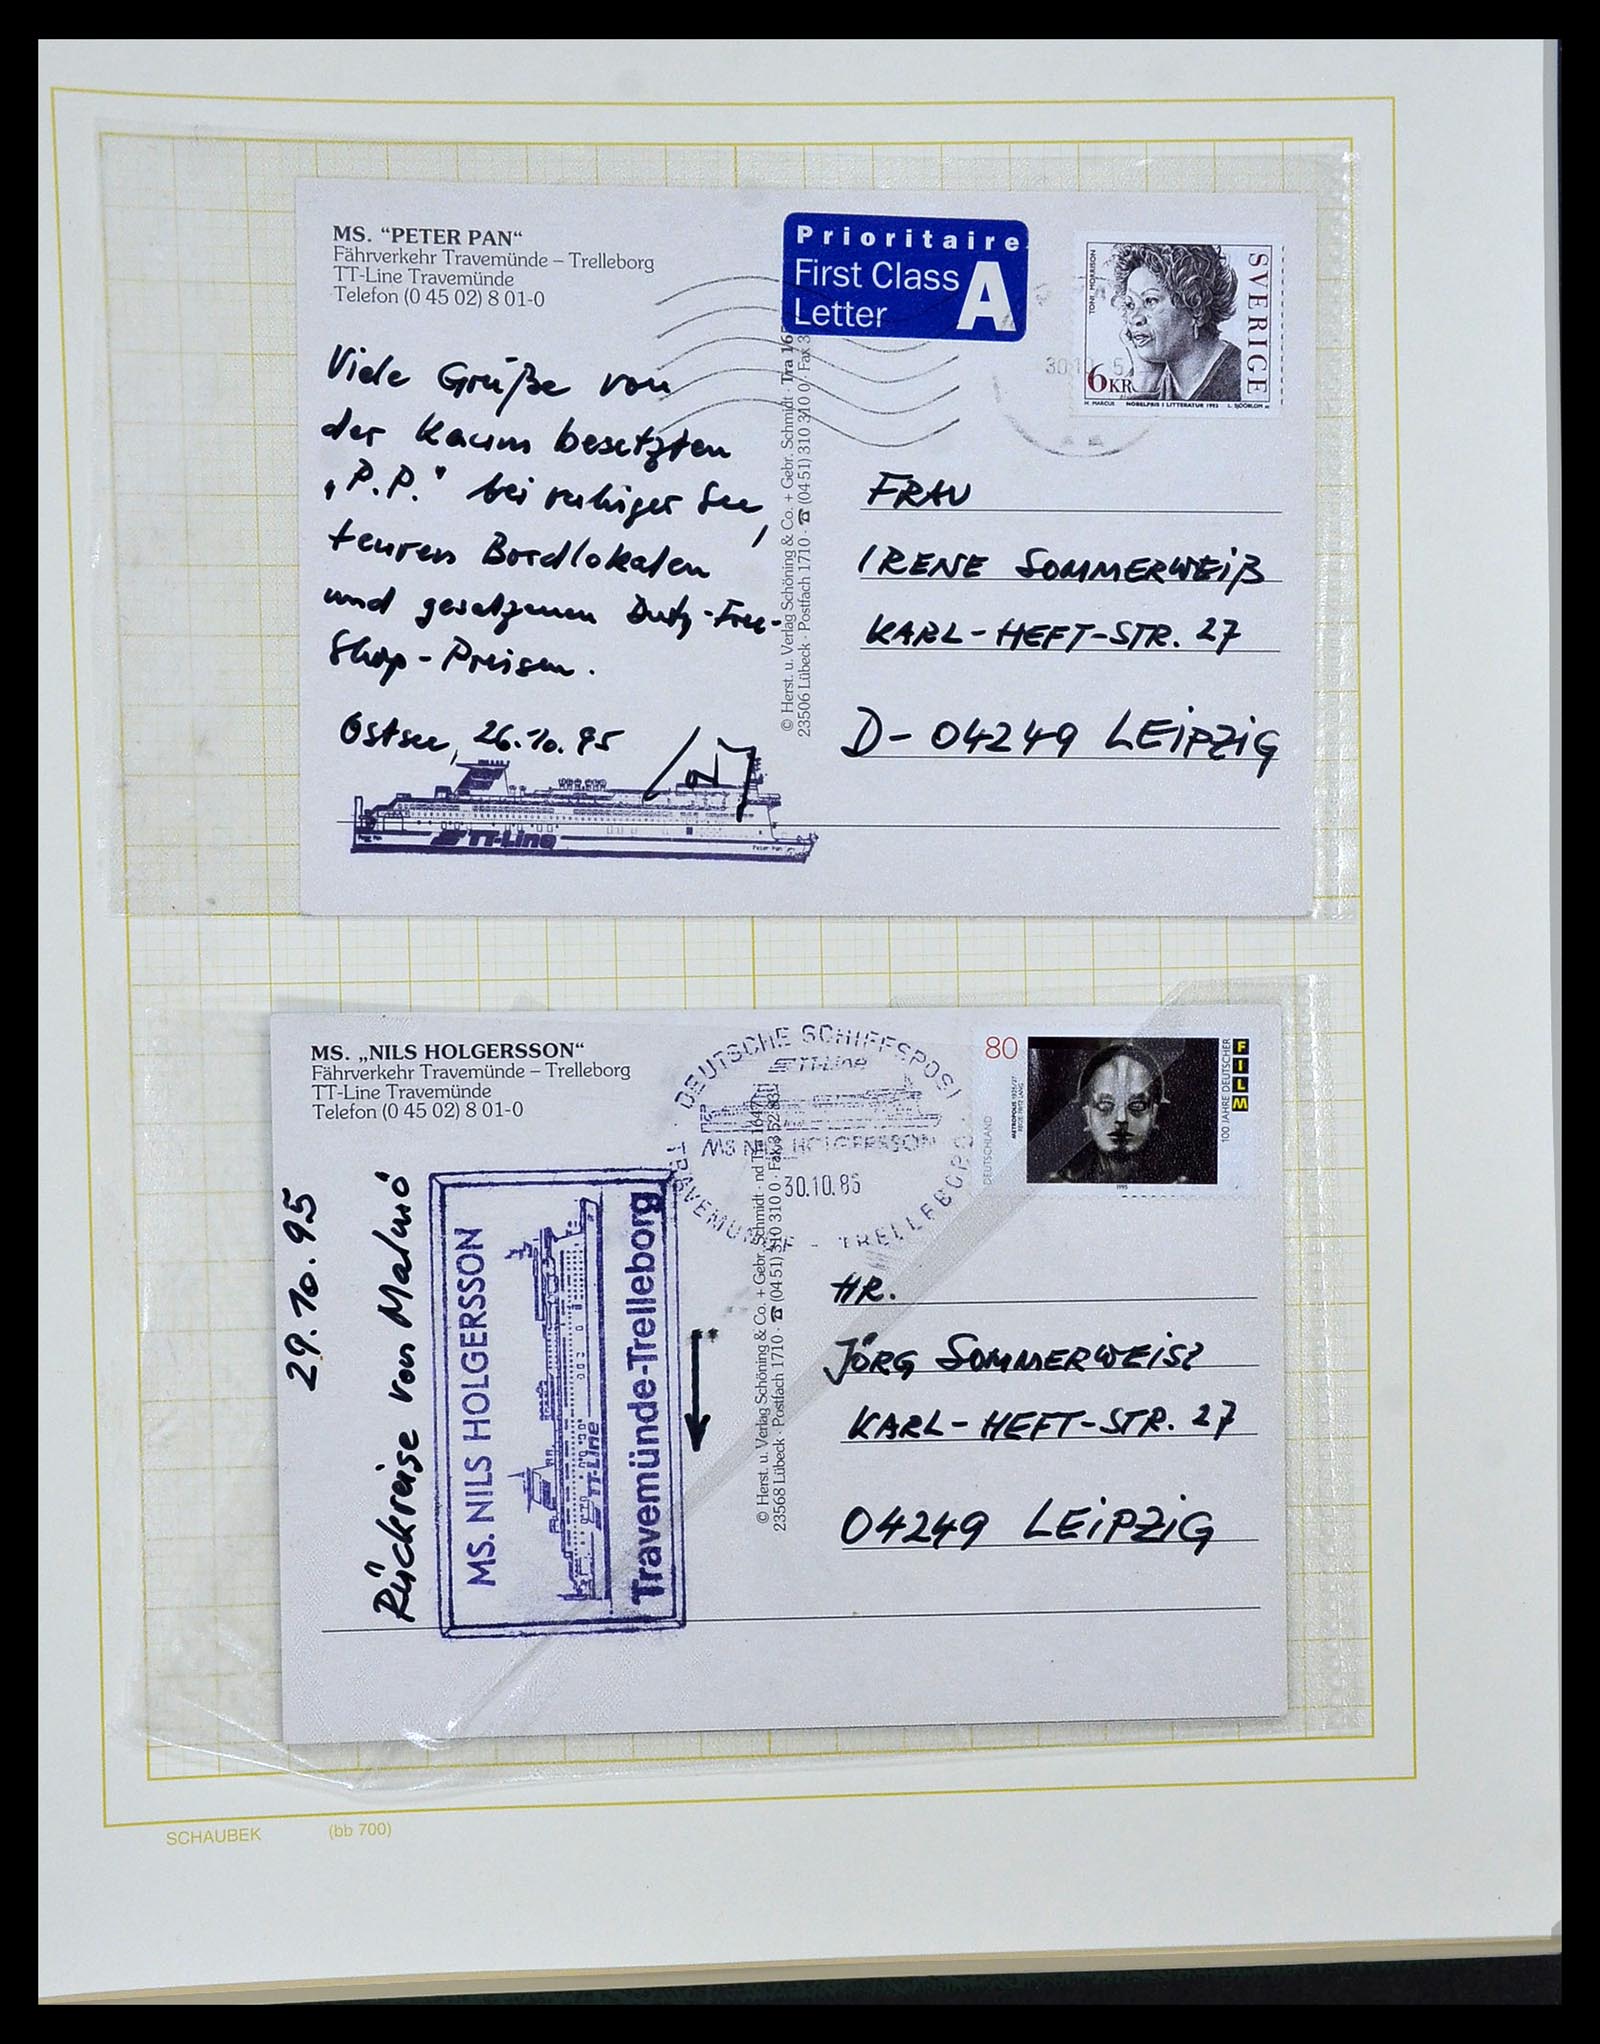 MS. “PETER PAN“
Fährverkehr Travemünde – Trelleborg
TT-Line Travemünde
Telefon (0 45 02) 8 01-0
Prioritaire
First Class
Letter
A
TONI MORRISON
SVERIGE
6KR
H. MARCUS NOBELPRIS I LITTERATUR 1993 L. SJÖÖBLOM sc
30.10. 5
Viele Grüße von
der kaum besetzten
„P.P.“ bei ruhiger See,
teuren Bordlokalen
und gesalzenen Duty-Free-
Shop-Preisen.
Ostsee, 26.10.95
TT-Line
Peter Pan
Peter Pan
© Herst. u. Verlag Schöning & Co. + Gebr. Schmidt · Tra 16
23506 Lübeck · Postfach 1710 · ☎ (04 51) 310 310 0 · Fax 3
FRAU
IRENE SOMMERWEIß
KARL-HEFT-STR. 27
D-04249 LEIPZIG
MS. „NILS HOLGERSSON“
Fährverkehr Travemünde – Trelleborg
TT-Line Travemünde
Telefon (0 45 02) 8 01-0
DEUTSCHE SCHIFFSPOST
TT-Line
MS NILS HOLGERSSON
30.10.86
TRAVEMÜNDE - TRELLEBORG
80
DEUTSCHLAND
METROPOLIS 1925/27
REGIE: FRITZ LANG
100 JAHRE DEUTSCHER
FILM
1995
29.10.95
Rückreise von Malmö
MS. NILS HOLGERSSON
TT-Line
Travemünde-Trelleborg
© Herst. u. Verlag Schöning & Co. + Gebr. Schmidt · nd Tra 1647
23568 Lübeck · Postfach 1710 · ☎ (04 51) 310 310 0 · Fax 3 52 83
HR.
JÖRG SOMMERWEISS
KARL-HEFT-STR. 27
04249 LEIPZIG
SCHAUBEK (bb 700)